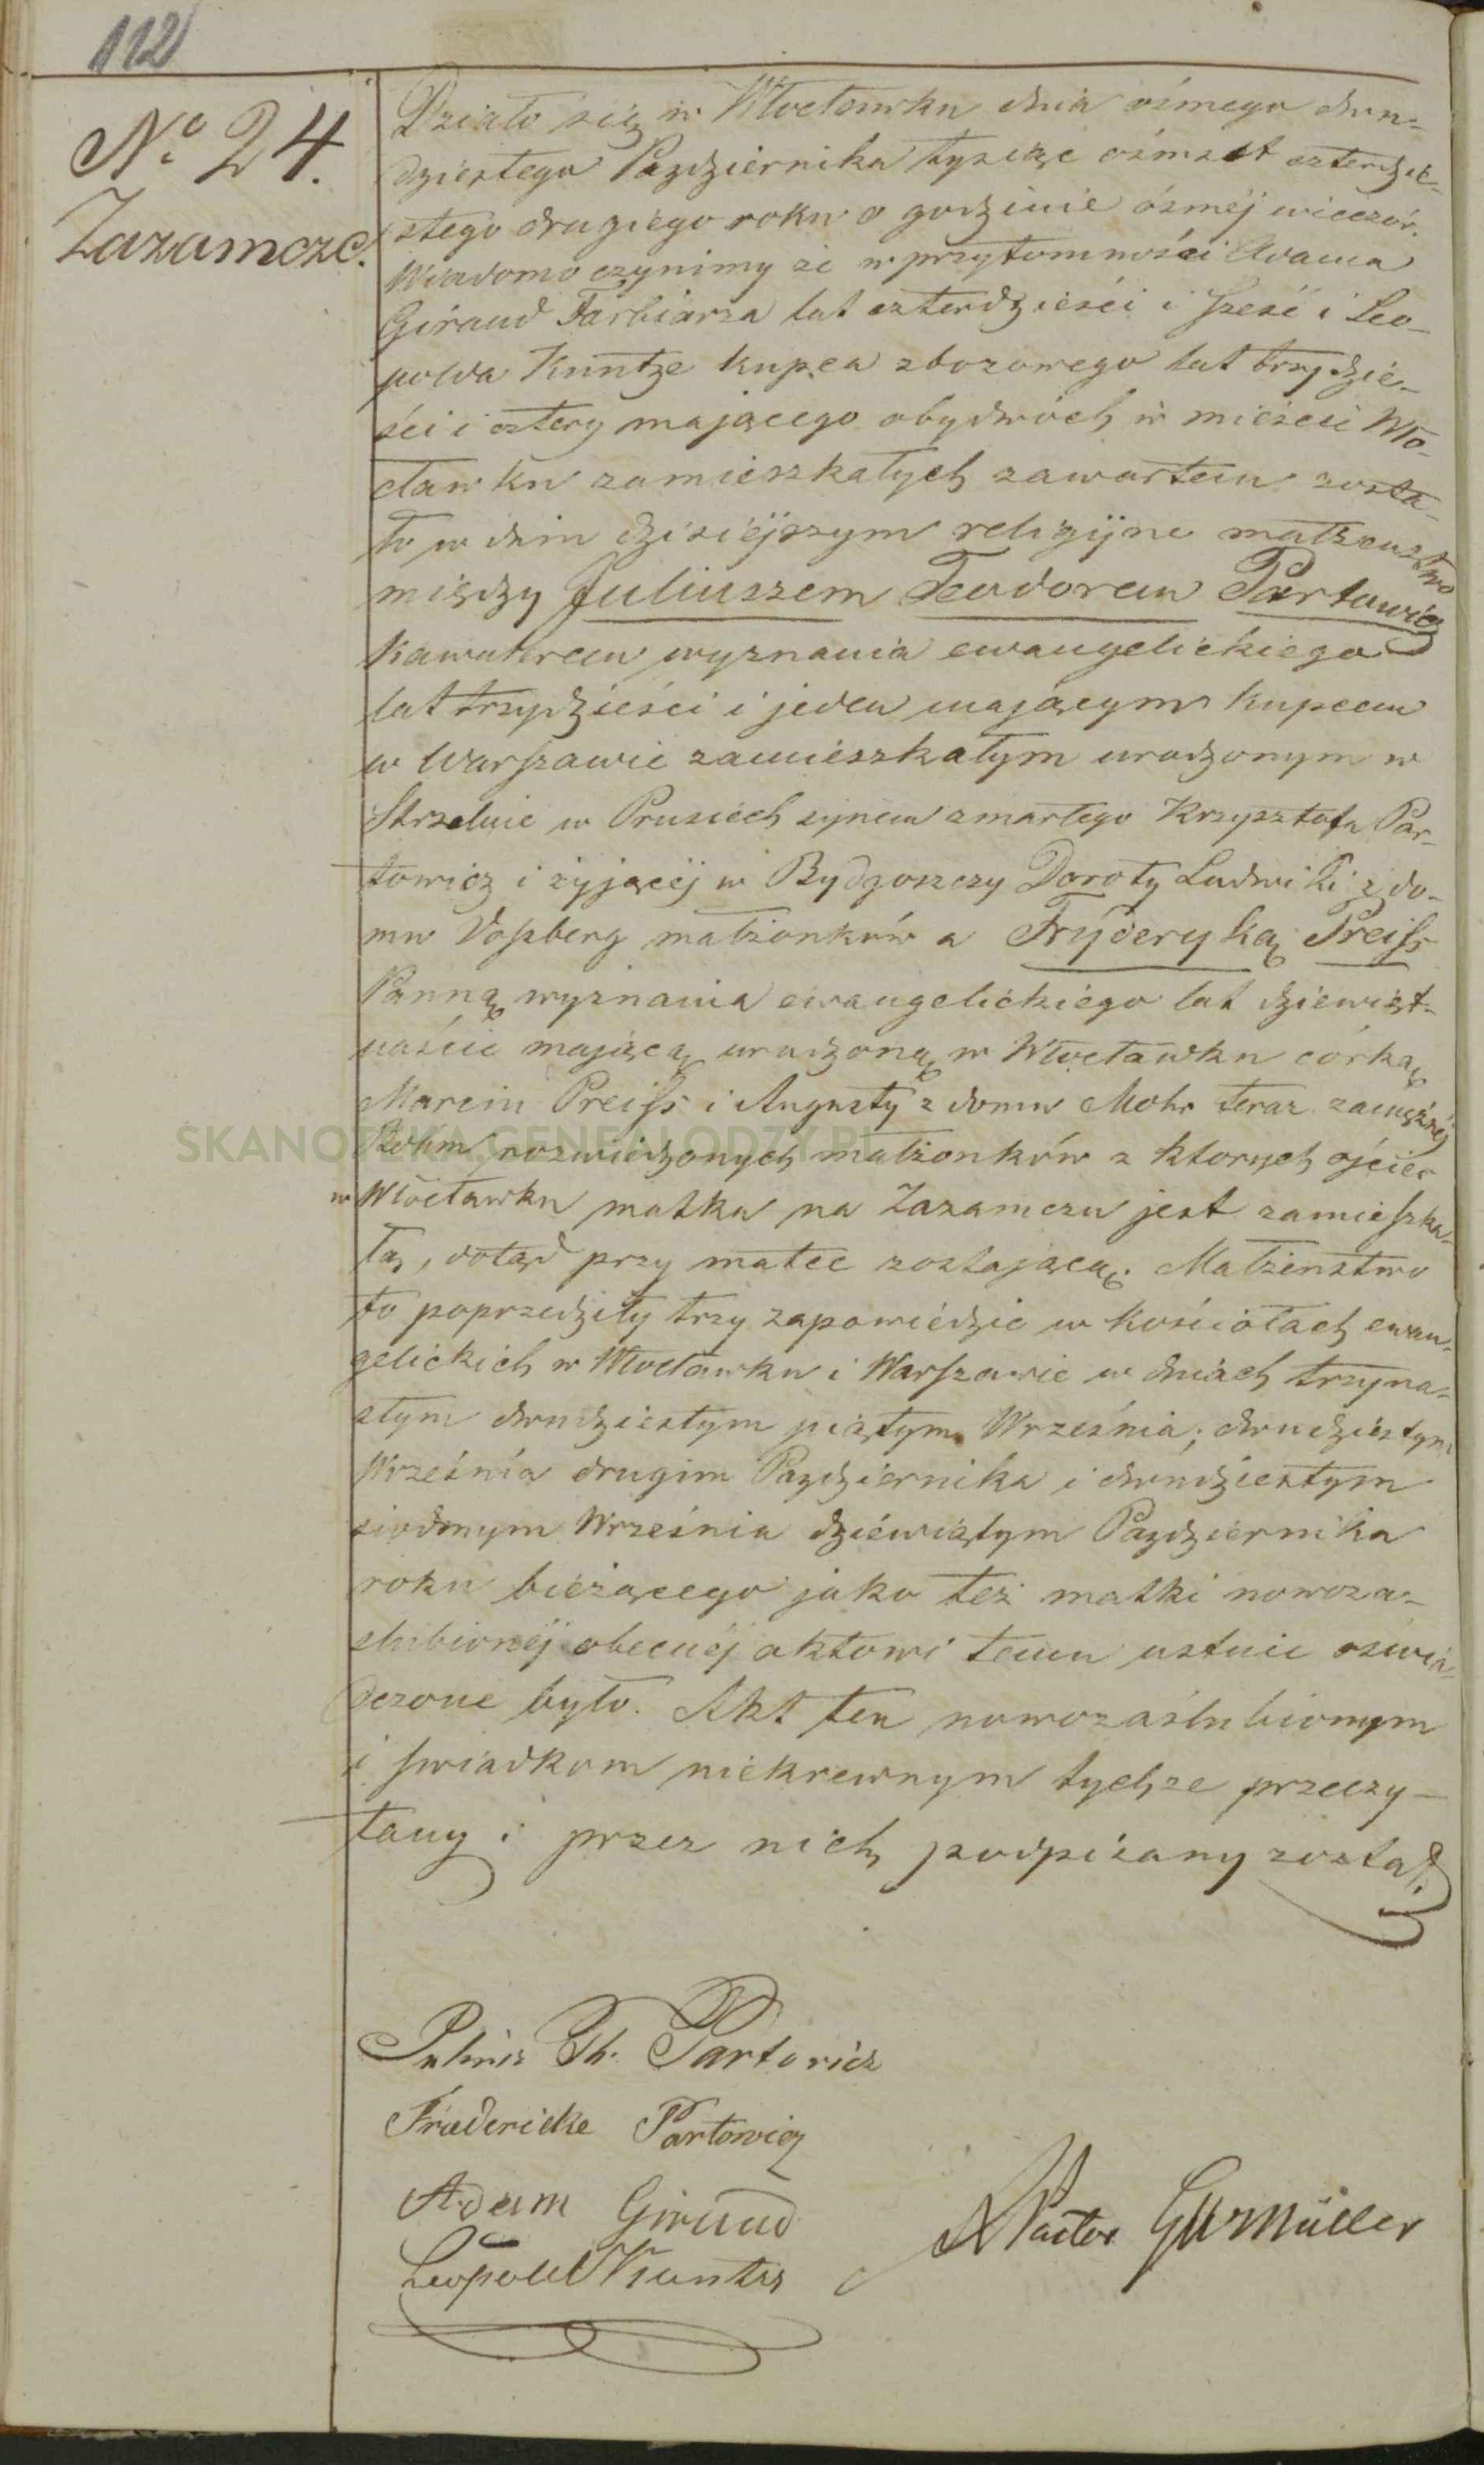 112
No 24.
Zazamcze.
Działo się w Włocławku dnia ósmego dwu-
dziestego Pazdziernika tysiąc ośmset czterdzie-
stego drugiego roku o godzinie ósmej wieczór.
Wiadomo czynimy że w przytomności Adama
Giraud Farbiarza lat czterdzieści i sześć i Leo-
polda Kuntze kupca zbozowego lat trzydzie-
ści i cztery mającego obydwóch w mieście Wło-
cławku zamieszkałych zawartem zosta-
ło w dniu dzisiejszym religijne małżeństwo
między Juliuszem Teodorem Partowicz
Kawalerem wyznania ewangelickiego
lat trzydzieści i jeden mającym kupcem
w Warszawie zamieszkałym urodzonym w
Strzelnie w Prusiech synem zmarłego Krzysztofa Par-
towicz i żyjącéj w Bydgoszczy Doroty Ludwiki z do-
mu Voßberg małżonków a Fryderyką Preiss
Panną wyznania ewangelickiego lat dziewięt-
naście mającą urodzoną w Włocławku córką
Marcin Preiss i Augusty z domu Mohr teraz zamężnéj
rozwiedzonych małżonków z ktorych ojciec
w Włocławku matka na Zazamczu jest zamieszka-
łą, dotąd przy matce zostającą. Małżeństwo
to poprzedziły trzy zapowiedzie w kościołach ewan-
gelickich w Włocławku i Warszawie w dniach trzyna-
stym dwudziestym piątym Września; dwudziestym
Września drugim Pazdziernika i dwudziestym
siodmym Września dziewiątym Pazdziernika
roku bieżącego jako też matki nowoza-
ślubionéj obecnéj aktowi temu ustnie oświa-
dczone było. Akt ten nowozaślubionym
i świadkom niekrewnym tychże przeczy-
tany i przez nich podpisany został.
Julius Th. Partowicz
Friedericke Partowicz
Adam Giraud
Leopold Kuntze
Pastor GWMüller
SKANOTEKA.GENEALODZY.PL